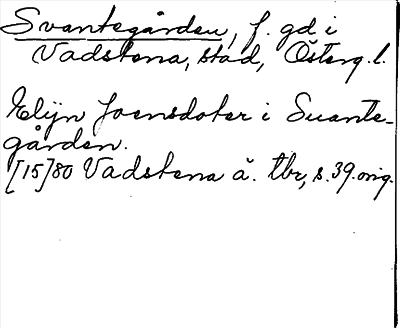 Svantegården, f. gd. i
Vadstena, stad, Österg. l.
Elijn Joensdoter i Suante-
gården.
[15]80 Vadstena ä. tbr, s. 39. orig.